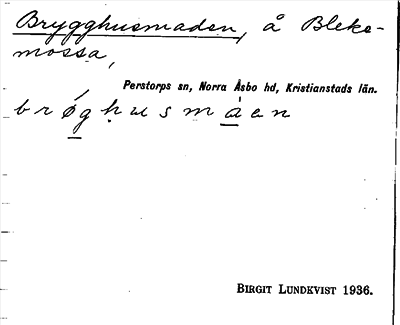 Brygghusmaden, å Bleke-
mossa,
Perstorps sn, Norra Åsbo hd, Kristianstads län.
brǿgḥusmåen
BIRGIT LUNDKVIST 1936.